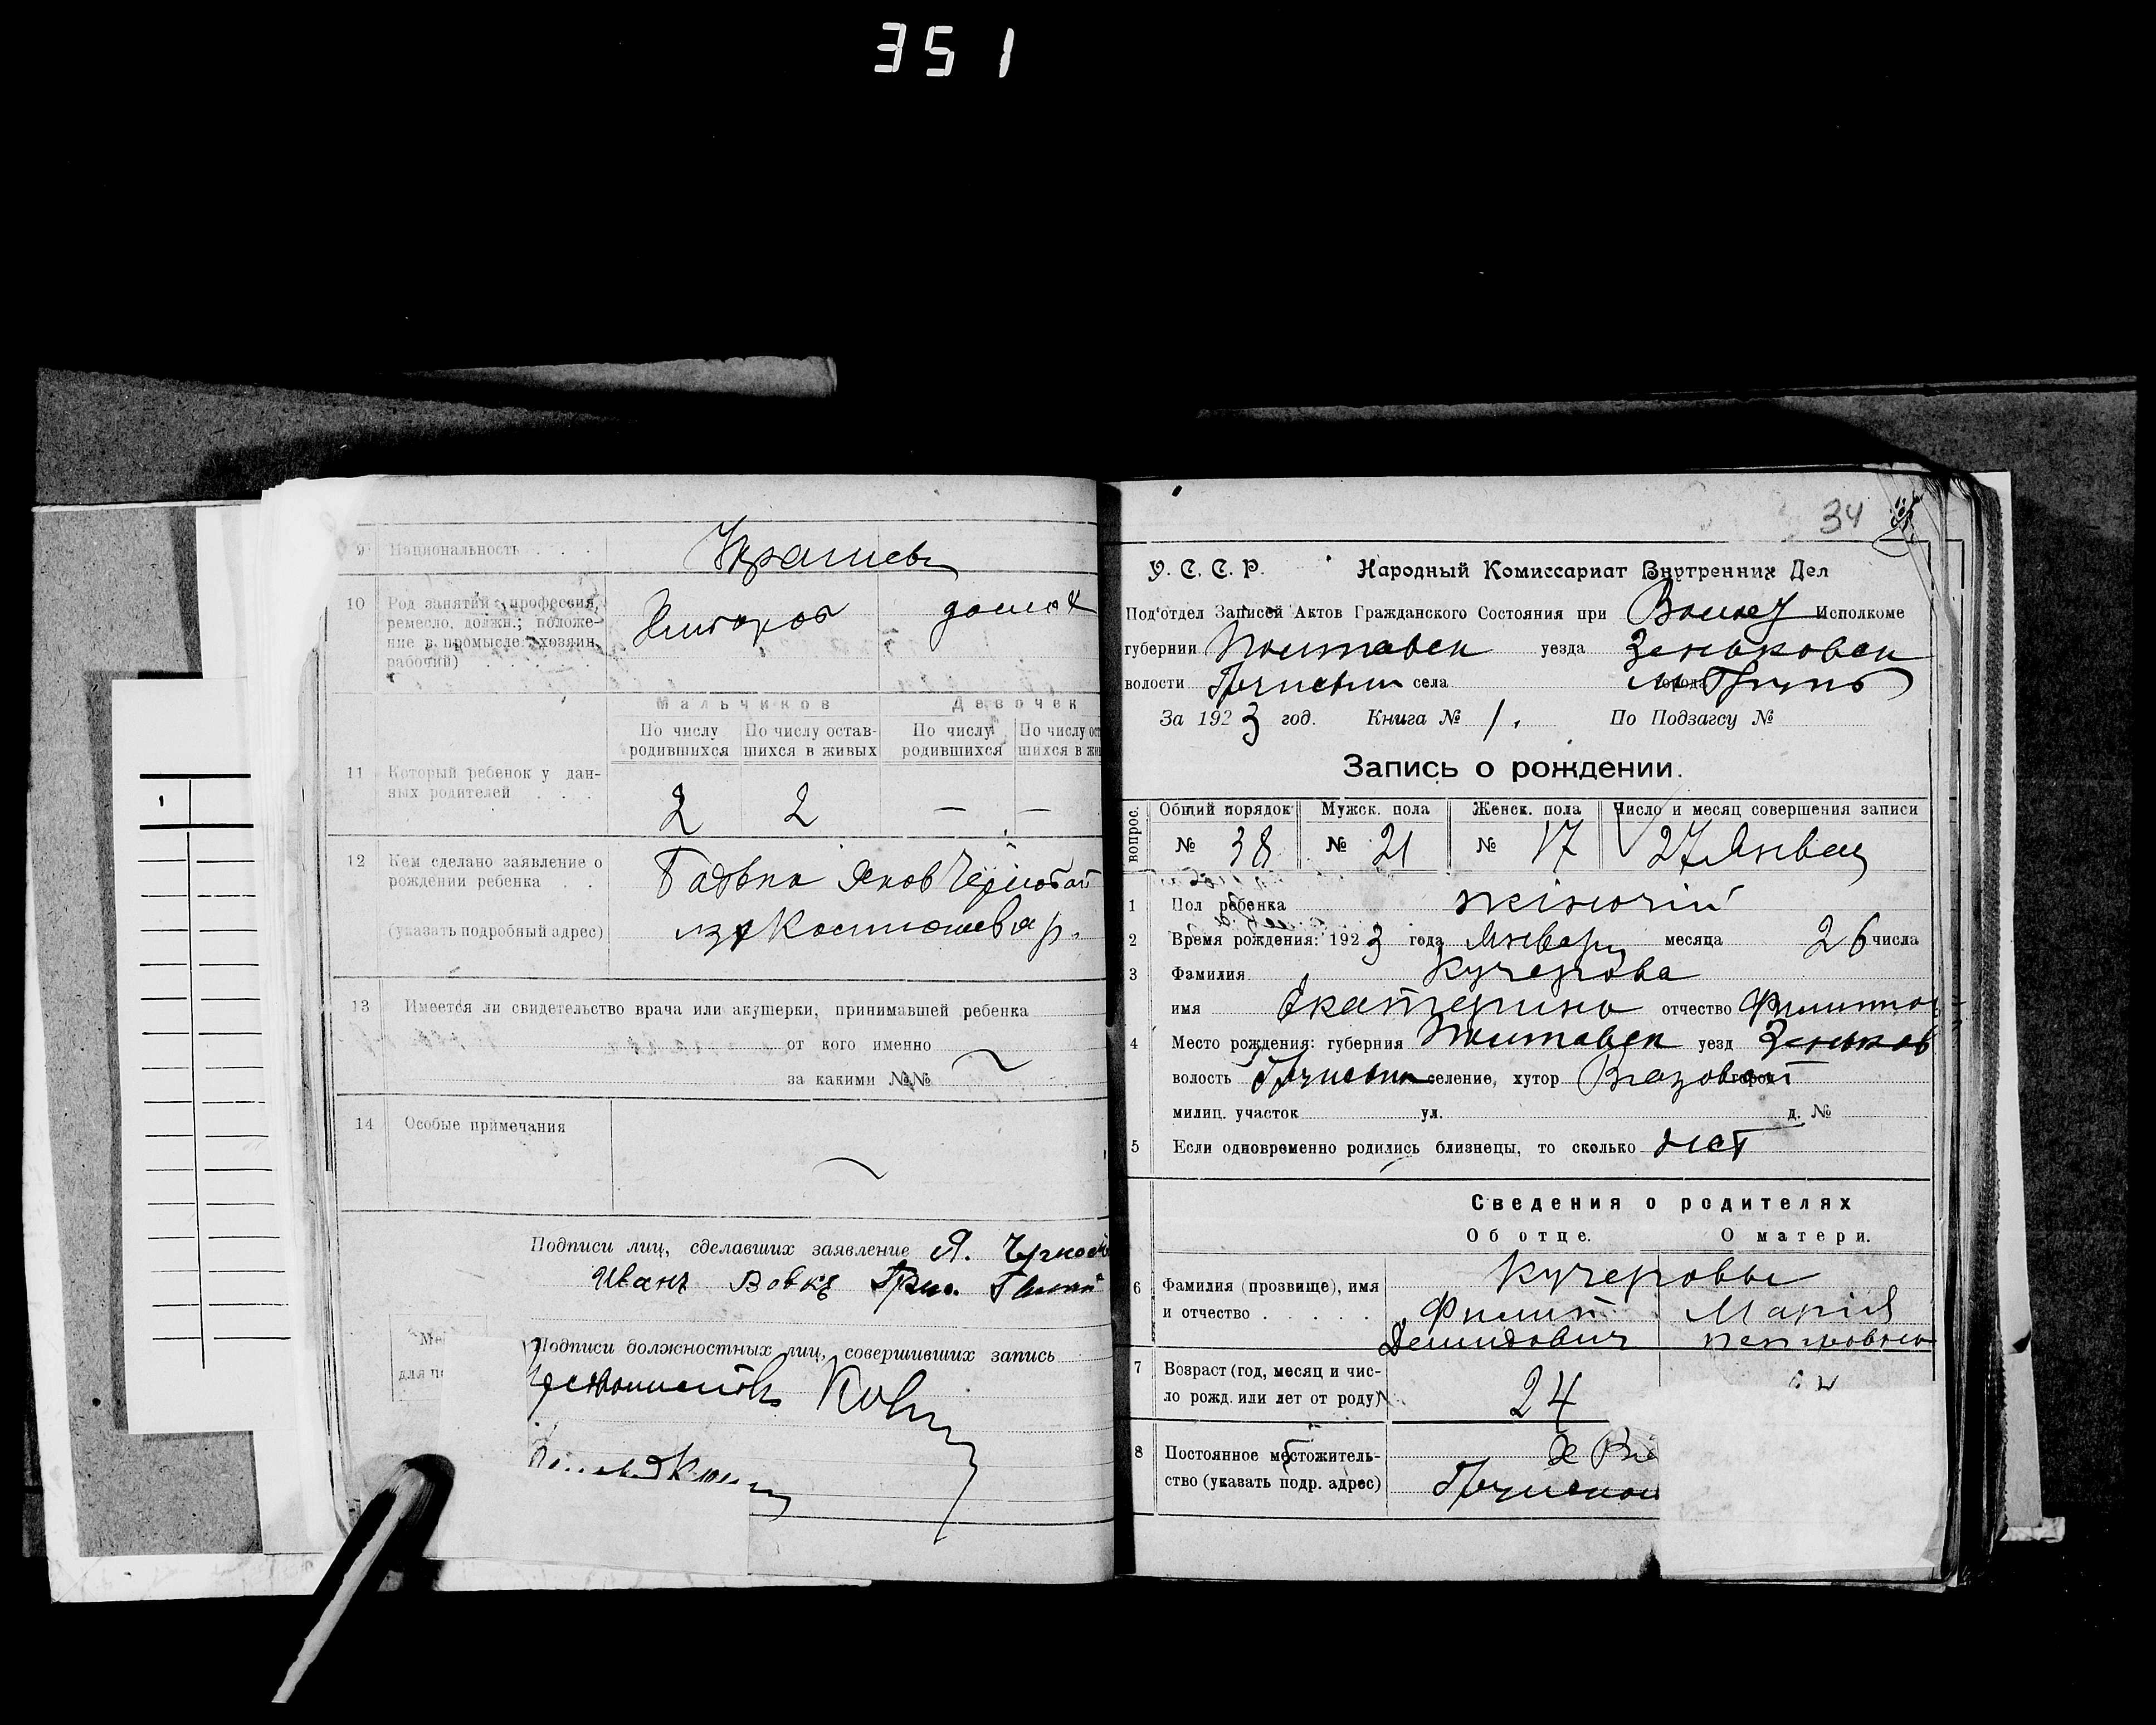 351
9 Национальность . . .
Украиньев
10 Род занятий (профессия, ремесло, должн.; положе-
ние в промысле: хозяин,
рабочий) . . . . . .
Хлибороб
Мальчиков Девочек
По числу родившихся По числу остав-шихся в живых По числу родившихся По числу ос
шихся в жи
11 Который ребенок у дан-
ных родителей . . .
2 2 — —
12 Кем сделано заявление о
рождении ребенка . .
Батько Яков Чернобай
(указать подробный адрес)
из х
13 Имеется ли свидетельство врача или акушерки, принимавшей ребенка
от кого именно
за какими №№
14 Особые примечания
Подписи лиц, сделавших заявление Я.
Иванъ Вовкъ Гри.
Ме
для пе
Подписи должностных лиц, совершивших запись
34
У. С. С. Р. Народный Комиссариат Внутренних Дел
Под'отдел Записей Актов Гражданского Состояния при Исполкоме
губернии Полтавск уезда Зеньковск
волости Грунськ села города м Грунь
За 1923 год. Книга № 1. По Подзагсу №
Запись о рождении.
вопрос. Общий порядок Мужск. пола Женск. пола Число и месяц совершения записи
№ 38 № 21 № 17 27 Января
1 Пол ребенка жіночий
2 Время рождения: 1923 года Января месяца 26 числа
3 Фамилия Кучерова
имя Екатерина отчество Филиппов
4 Место рождения: губерния Полтавск уезд Зеньков
волость Грунськ селение, хутор город
милиц. участок ул. д. №
5 Если одновременно родились близнецы, то сколько нет
Сведения о родителях
Об отце. О матери.
Кучеровы
6 Фамилия (прозвище), имя
и отчество . . . . .
Филип Марія
Демидович Петровна
7 Возраст (год, месяц и чис-
ло рожд. или лет от роду)
24
8 Постоянное местожитель-
ство (указать подр. адрес)
х